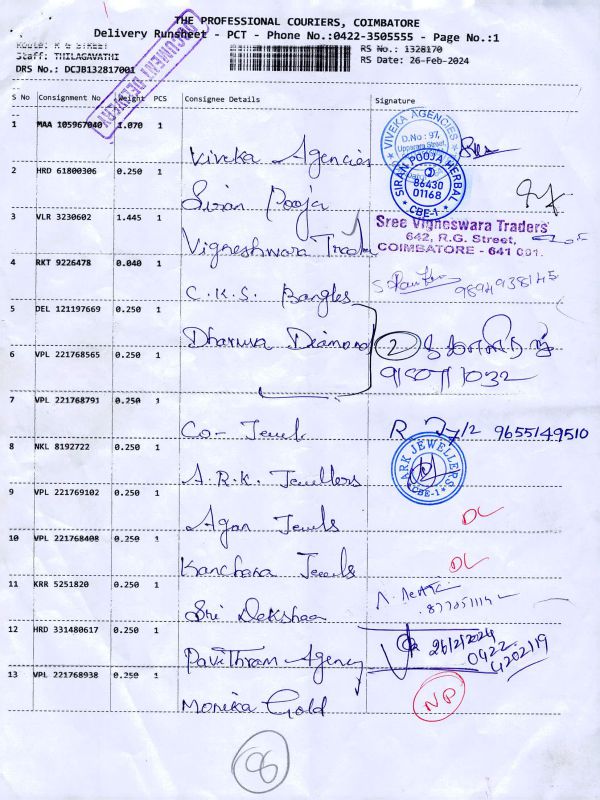 THE PROFESSIONAL COURIERS, COIMBATORE
Delivery Runsheet - PCT - Phone No.:0422-3505555 - Page No.:1
Route: R G STREET
Staff: THILAGAVATHI
DRS No.: DCJB132817001
RS No.: 1328170
RS Date: 26-Feb-2024
DOCUMENT DELIVERY
S No Consignment No Weight PCS Consignee Details Signature
1 MAA 105967040 1.070 1 Viveka Agencies
VIVEKA AGENCIES
D.No: 97,
Upparara Street,
2 HRD 61800306 0.250 1 Siran Pooja
SIRAN POOJA HERBAL
86430
01168
CBE-1
3 VLR 3230602 1.445 1 Vigneshwara Trade
Sree Vigneswara Traders
642, R.G. Street,
COIMBATORE - 641 001.
4 RKT 9226478 0.040 1 C.K.S. Bangles
9894938145
5 DEL 121197669 0.250 1 Dharma Diamond
2
6 VPL 221768565 0.250 1
9150771032
7 VPL 221768791 0.250 1 Co- Jewel
9655149510
8 NKL 8192722 0.250 1 A.R.K. Jewellers
ARK JEWELLERS
CBE-1
9 VPL 221769102 0.250 1 Agan Jewels DL
10 VPL 221768408 0.250 1 Kanchana Jewels DL
11 KRR 5251820 0.250 1 Sri Dekshaa
12 HRD 331480617 0.250 1 Pavithram Agency
26/2/2024
0422
4202119
13 VPL 221768938 0.250 1 Monika Gold NP